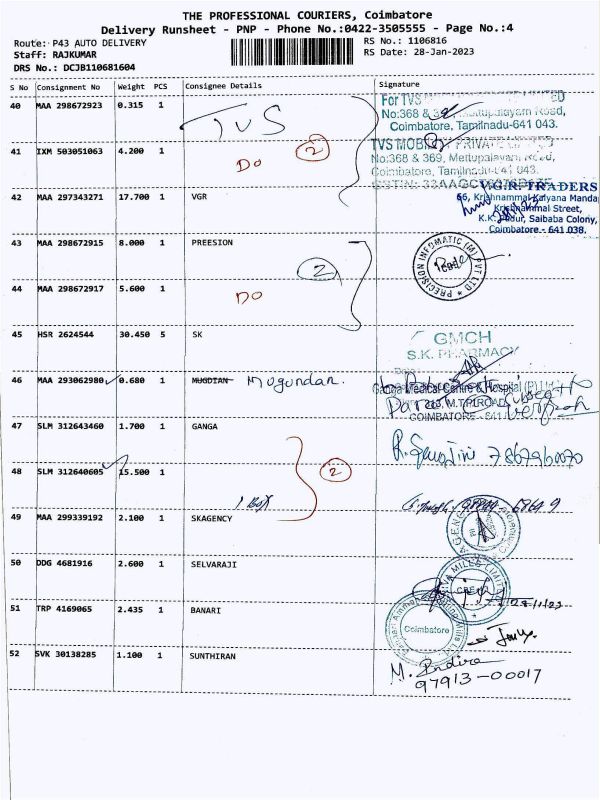 THE PROFESSIONAL COURIERS, Coimbatore
Delivery Runsheet - PNP - Phone No.:0422-3505555 - Page No.:4
Route: P43 AUTO DELIVERY
RS No.: 1106816
Staff: RAJKUMAR
RS Date: 28-Jan-2023
DRS No.: DCJB110681604
S No Consignment No Weight PCS Consignee Details Signature
40 MAA 298672923 0.315 1 TVS
For TVS
No:368 & Mettupalayam Road,
Coimbatore, Tamilnadu-641 043.
41 IXM 503051063 4.200 1 DO 2
TVS MOBILITY PRIVATE LIMITED
No:368 & 369, Mettupalayam Road,
Coimbatore, Tamilnadu-641 043.
42 MAA 297343271 17.700 1 VGR
V.G.R. TRADERS
66, Krishnammal Kalyana Manda
Krishnammal Street,
K.K. Pudur, Saibaba Colony,
Coimbatore - 641 038.
43 MAA 298672915 8.000 1 PREESION
PRECISION INFOMATIC (M) PVT LTD
2
44 MAA 298672917 5.600 1 DO
45 HSR 2624544 30.450 5 SK
GMCH
S.K. PHARMACY
46 MAA 293062980 0.680 1 MUGDIAN Mugundan.
Ganga Medical Centre & Hospital (P) Ltd
313, M.T.P.ROAD
COIMBATORE - 641
47 SLM 312643460 1.700 1 GANGA
7867960070
48 SLM 312640605 15.500 1 2
1 Box
49 MAA 299339192 2.100 1 SKAGENCY
50 DDG 4681916 2.600 1 SELVARAJI
51 TRP 4169065 2.435 1 BANARI
Coimbatore
52 SVK 30138285 1.100 1 SUNTHIRAN
M. Indira
97913-00017